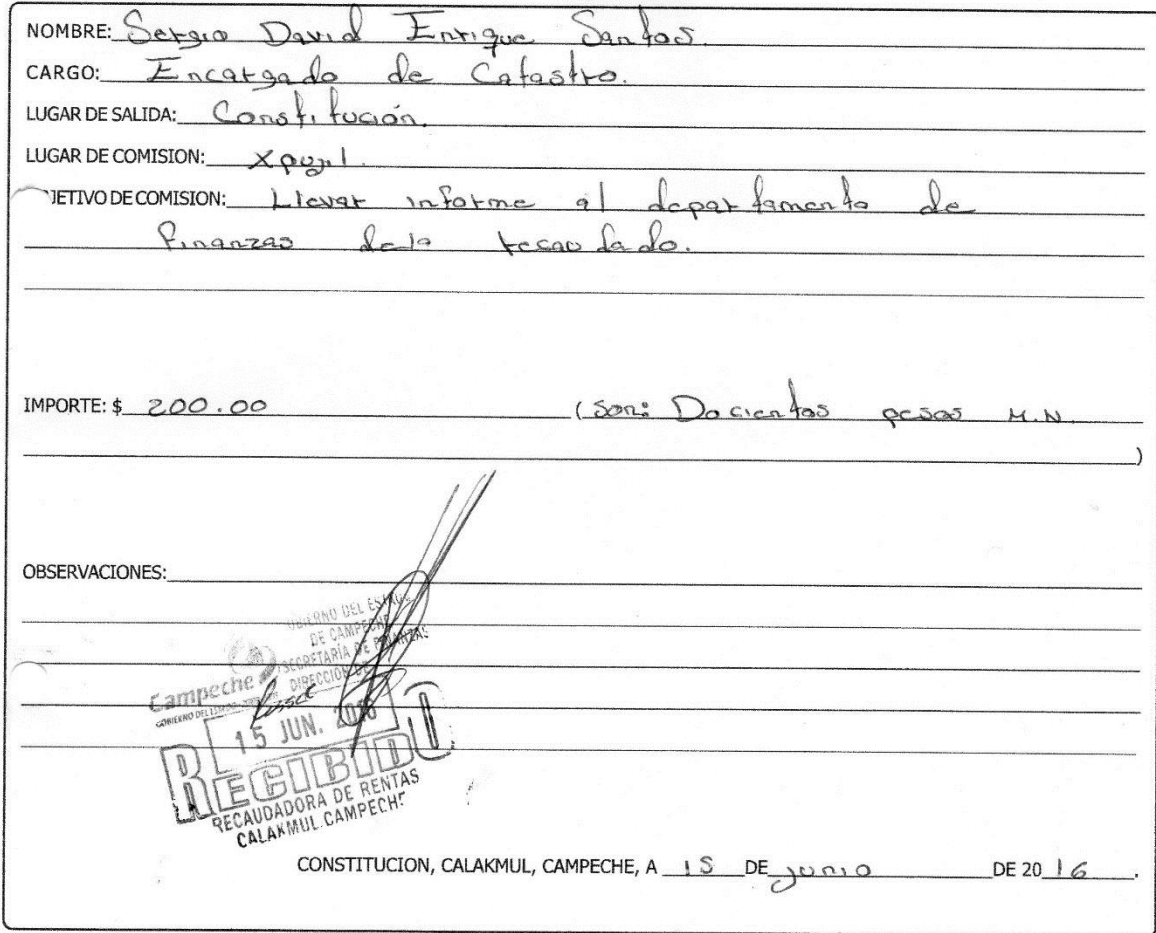 NOMBRE: Sergio David Enrique Santos.
CARGO: Encargado de Catastro.
LUGAR DE SALIDA: Constitución.
LUGAR DE COMISION: Xpujil.
JETIVO DE COMISION: Llevar informe al departamento de
finanzas de lo recaudado.
IMPORTE: $ 200.00 (Son: Docientos pesos M.N.
)
OBSERVACIONES:
GOBIERNO DEL ESTADO
DE CAMPECHE
SECRETARÍA DE FINANZAS
DIRECCIÓN DE
Campeche
15 JUN. 2016
RECIBIDO
RECAUDADORA DE RENTAS
CALAKMUL.CAMPECHE
CONSTITUCION, CALAKMUL, CAMPECHE, A 15 DE junio DE 2016.